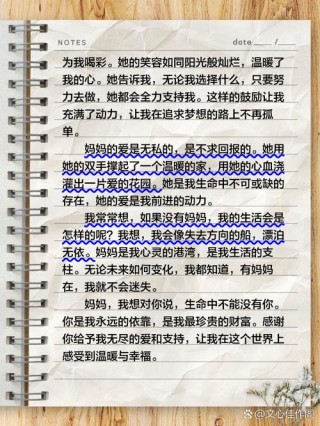 NOTES
date ____ /____
为我喝彩。她的笑容如同阳光般灿烂，温暖了
我的心。她告诉我，无论我选择什么，只要努
力去做，她都会全力支持我。这样的鼓励让我
充满了动力，让我在追求梦想的路上不再孤
单。
妈妈的爱是无私的，是不求回报的。她用
她的双手撑起了一个温暖的家，用她的心血浇
灌出一片爱的花园。她是我生命中不可或缺的
存在，她的爱是我前进的动力。
我常常想，如果没有妈妈，我的生活会是
怎样的呢？我想，我会像失去方向的船，漂泊
无依。妈妈是我心灵的港湾，是我生活的支
柱。无论未来如何变化，我都知道，有妈妈
在，我就不会迷失。
妈妈，我想对你说，生命中不能没有你。
你是我永远的依靠，是我最珍贵的财富。感谢
你给予我无尽的爱和支持，让我在这个世界上
感受到温暖与幸福。
@文心佳作阁